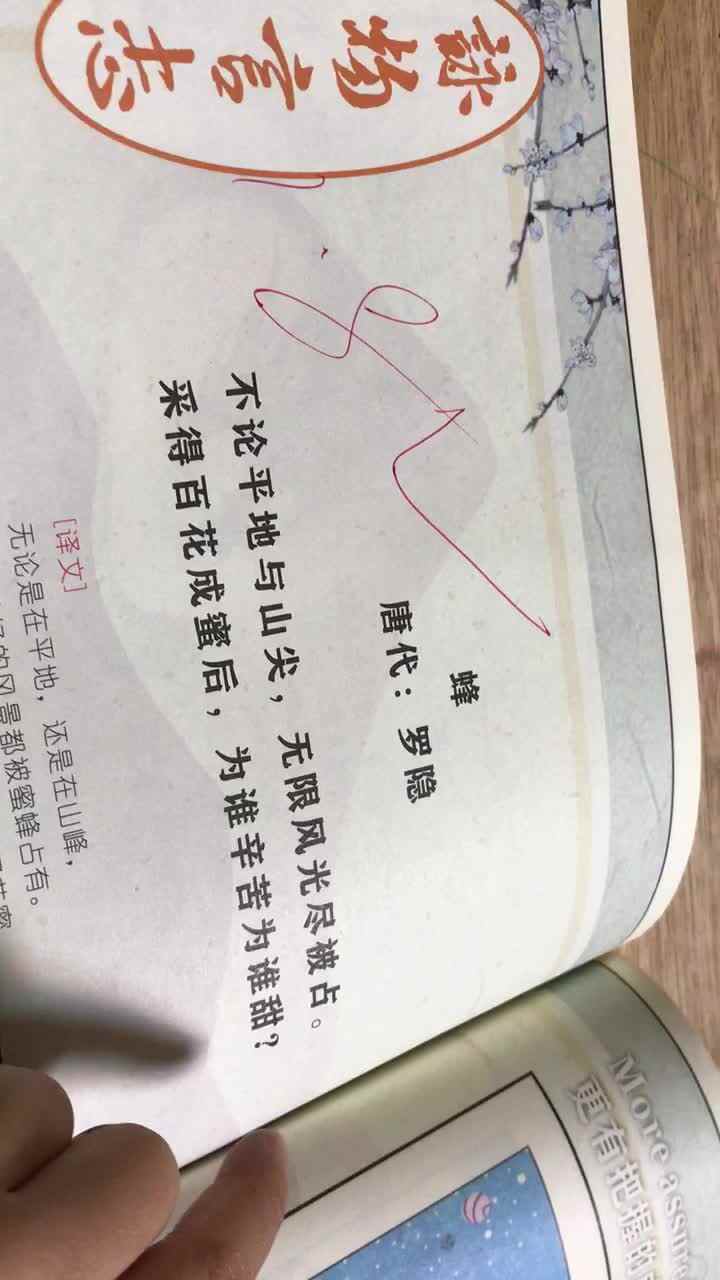 咏物言志
蜂
唐代：罗隐
不论平地与山尖，无限风光尽被占。
采得百花成蜜后，为谁辛苦为谁甜？
[译文]
无论是在平地，还是在山峰，
的风景都被蜜蜂占有。
More assur
更有把握的